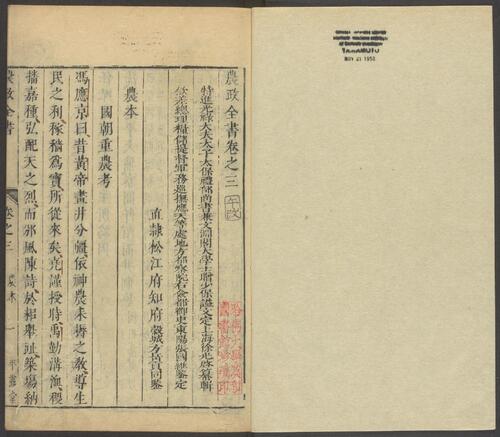 農政全書卷之三
特進光祿大夫太子太保禮部尚書兼文淵閣大學士贈少保謚文定上海徐光啓纂輯
欽差總理糧儲提督軍務巡撫應天等處地方都察院右僉都御史東陽張國維鑒定
直隸松江府知府穀城方岳貢同鑒
農本
國朝重農考
馮應京曰昔黃帝畫井分疆依神農耒耨之教導生
民之利稼穡為寶所從來矣堯謹授時禹勤溝洫稷
播嘉種弘配天之烈而邠風陳詩於耜舉趾築場納
農政全書
卷之三
農本
一
平露堂